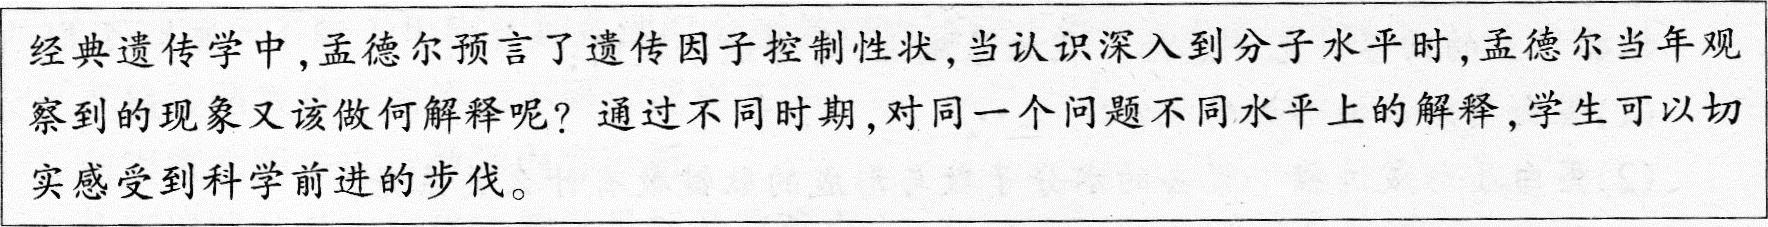 经典遗传学中,孟德尔预言了遗传因子控制性状,当认识深入到分子水平时,孟德尔当年观
察到的现象又该做何解释呢? 通过不同时期,对同一个问题不同水平上的解释,学生可以切
实感受到科学前进的步伐。